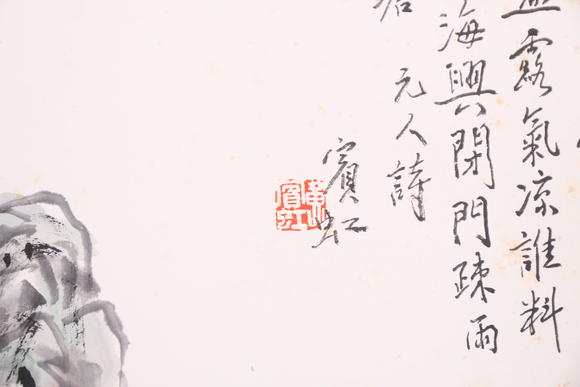 露氣凉誰料
海興閉門疎雨
元人詩
賓虹
黃賓虹